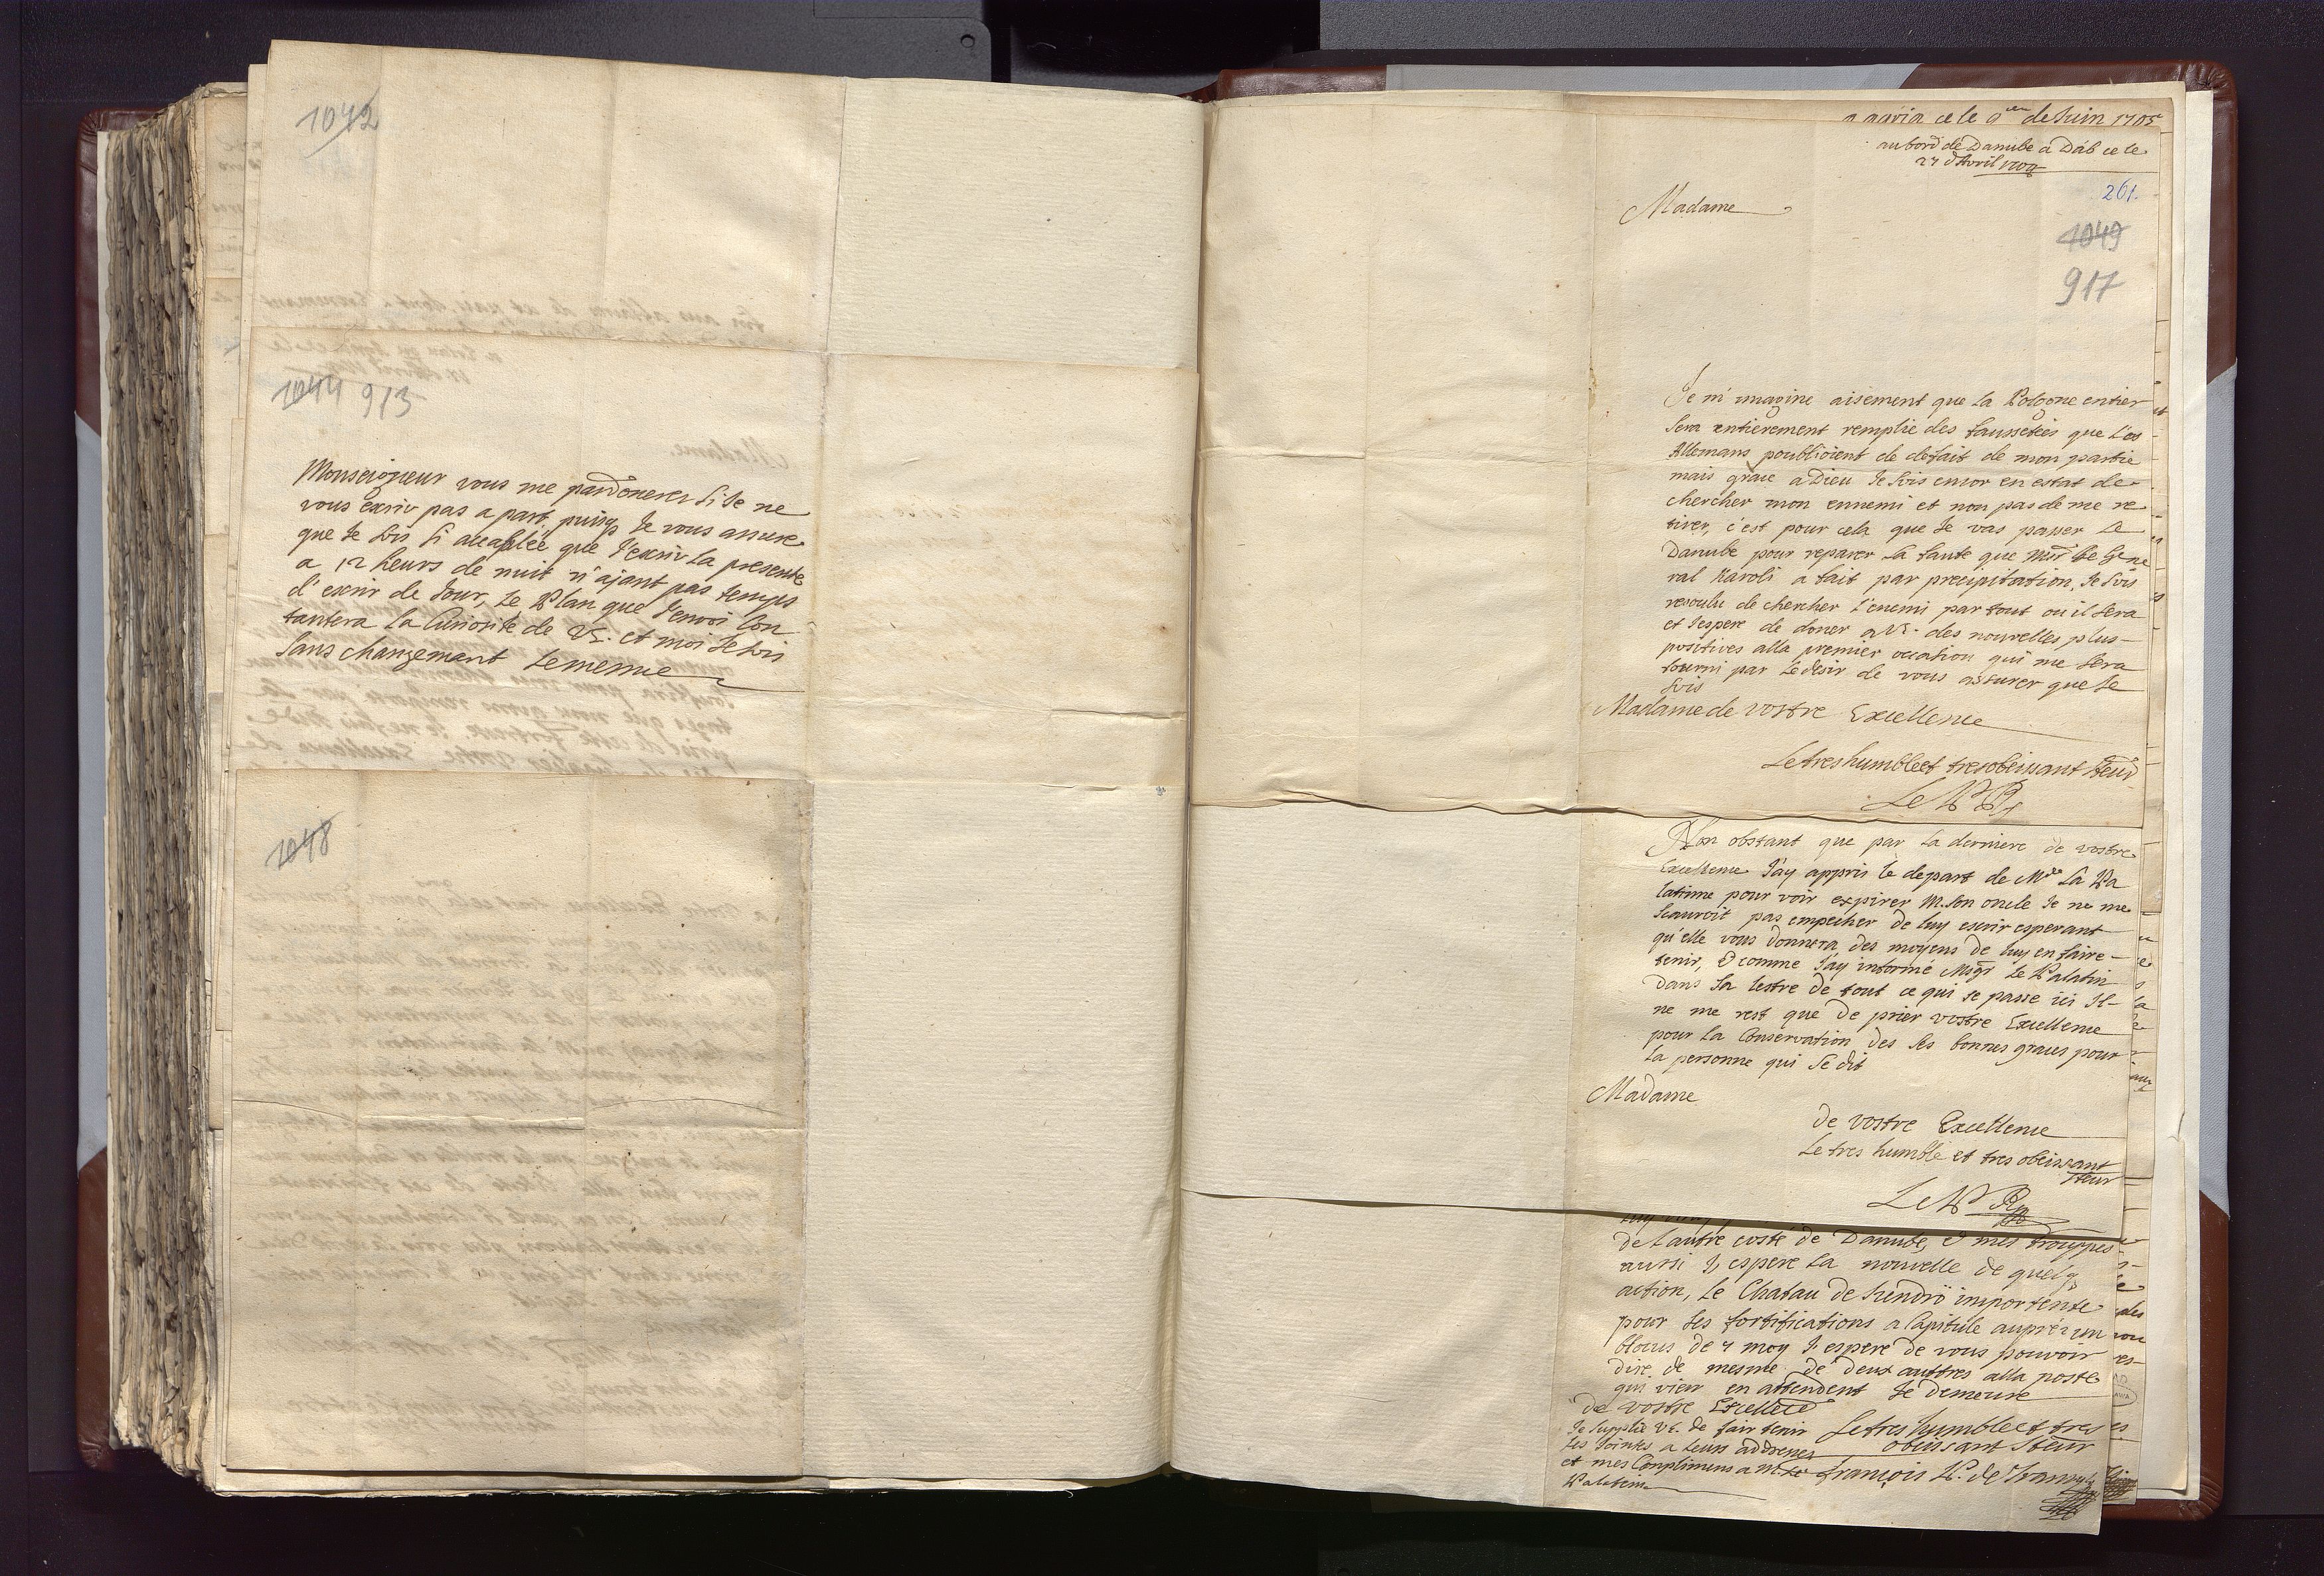 1042
1044 913
Monseigneur vous me pardonerer si Je ne
vous escriv pas a part, puisq Je vous assure
que Je suis si accablée que J'escriv la presente
a 12 heurs de nuit n'ajant pas temps
d'escrir de Jour, Le Plan que J'envoi Con
tantera la Curiosite de VE. et moi Je suis
sans changemant Lememe
1048
ce le 9 de Juin 1705
au bord de Danube a Dab ce le
27 d'Avril
261.
1049
917
Madame
Je m'imagine aisement que la Pologne entier
sera entierement remplie des faussetées que Les
Allemans poublioient de defait de mon partie
mais grace a Dieu Je suis encor en estat de
chercher mon ennemi et non pas de me re
tirer, c'est pour cela que Je vas passer Le
Danube pour reparer la faute que Mesr Le Gene
ral Karoli a fait par precipitation, Je suis
resoulu de chercher l'enemi par tout ou il sera
et J'espere de doner a VE. des nouvelles plus
positives alla premier occation qui me sera
fourni par Le desir de vous assurer que Je
suis
Madame de vostre Excellence
Le tres humble et tres obeissant Steur
Le P R
Non obstant que par la derniere de vostre
Excellence J'ay appris le depart de Mde La Pa
latinne pour voir expirer M. son oncle Je ne me
scauroit pas empecher de luy escrir esperant
qu'elle vous donnera des moyens de luy en faire
tenir, & comme J'ay informé Msgr Le Palatin
dans sa lestre de tout ce qui se passe ici Il
ne me rest que de prier vostre Excellence
pour la Conservation des ses bonnes graces pour
la personne qui se dit
Madame
de vostre Excellence
Le tres humble et tres obeissant
Steur
Le P R
de l'autre costé de Danube, & mes trouppes
aussi J'espere la nouvelle de quelq
action, Le Chatau de Sendrö importente
pour ses fortifications a Capitule auprés un
blocus de 7 moy J'espere de vous pouvoir
dire de mesme de deux auttres alla poste
qui vien en attendent Je demeure
de vostre Excellece
Je supplie VE. de fair tenir Le tres humble et tres
les Jointes a leurs addresses obeissant Steur
et mes Complimens a François P. de Transyl
Palatin